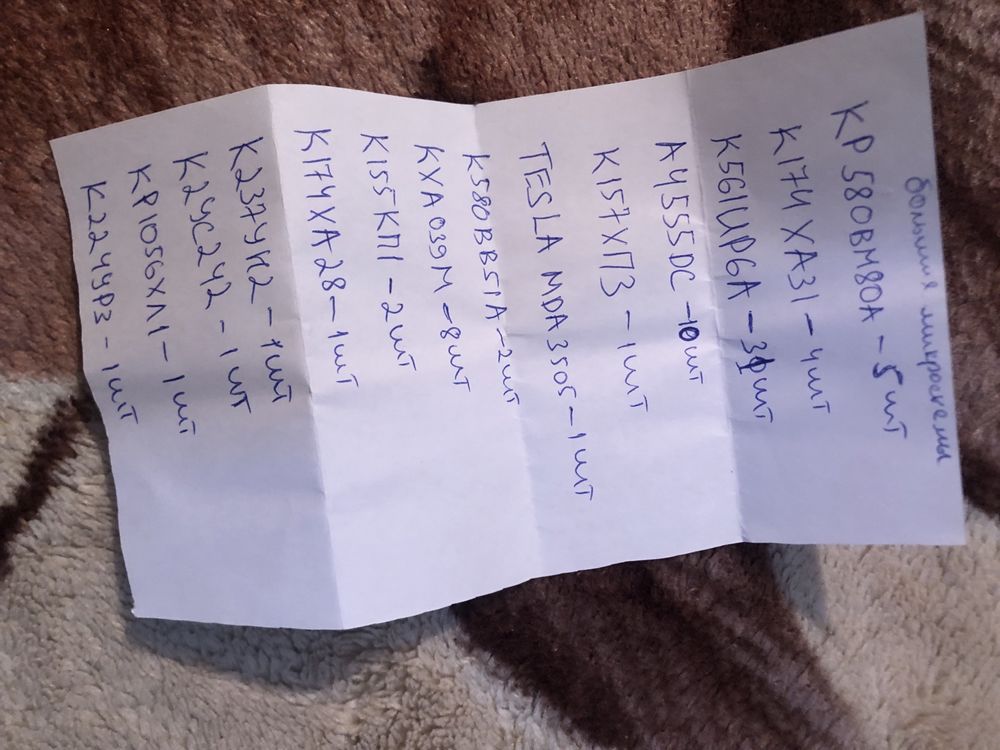 большие микросхемы
КР580ВМ80А - 5 шт
К174ХА31 - 4 шт
К561ИР6А - шт
А4555DC - 10 шт
К157ХП3 - 1 шт
TESLA MDA3505 - 1 шт
К580ВВ51А - 2 шт
КХА039М - 8 шт
К155КП1 - 2 шт
К174ХА28 - 1 шт
К237УК2 - 1 шт
К2УС242 - 1 шт
КР1056ХЛ1 - 1 шт
К224УР3 - 1 шт